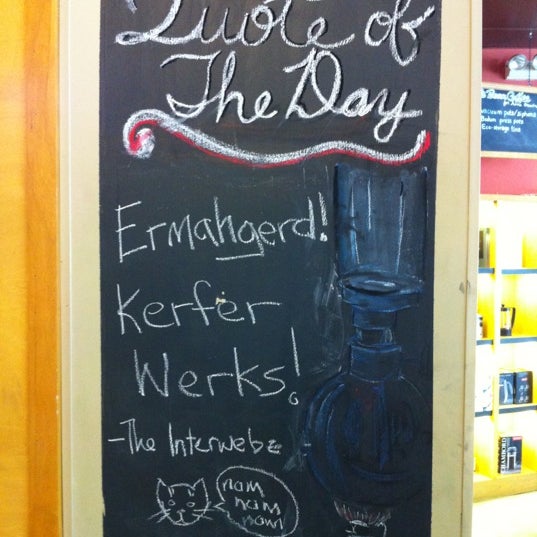 Quote of
The Day
Ermahgerd!
Kerfer
Werks!
-The Interwebz
nom
nom
nom